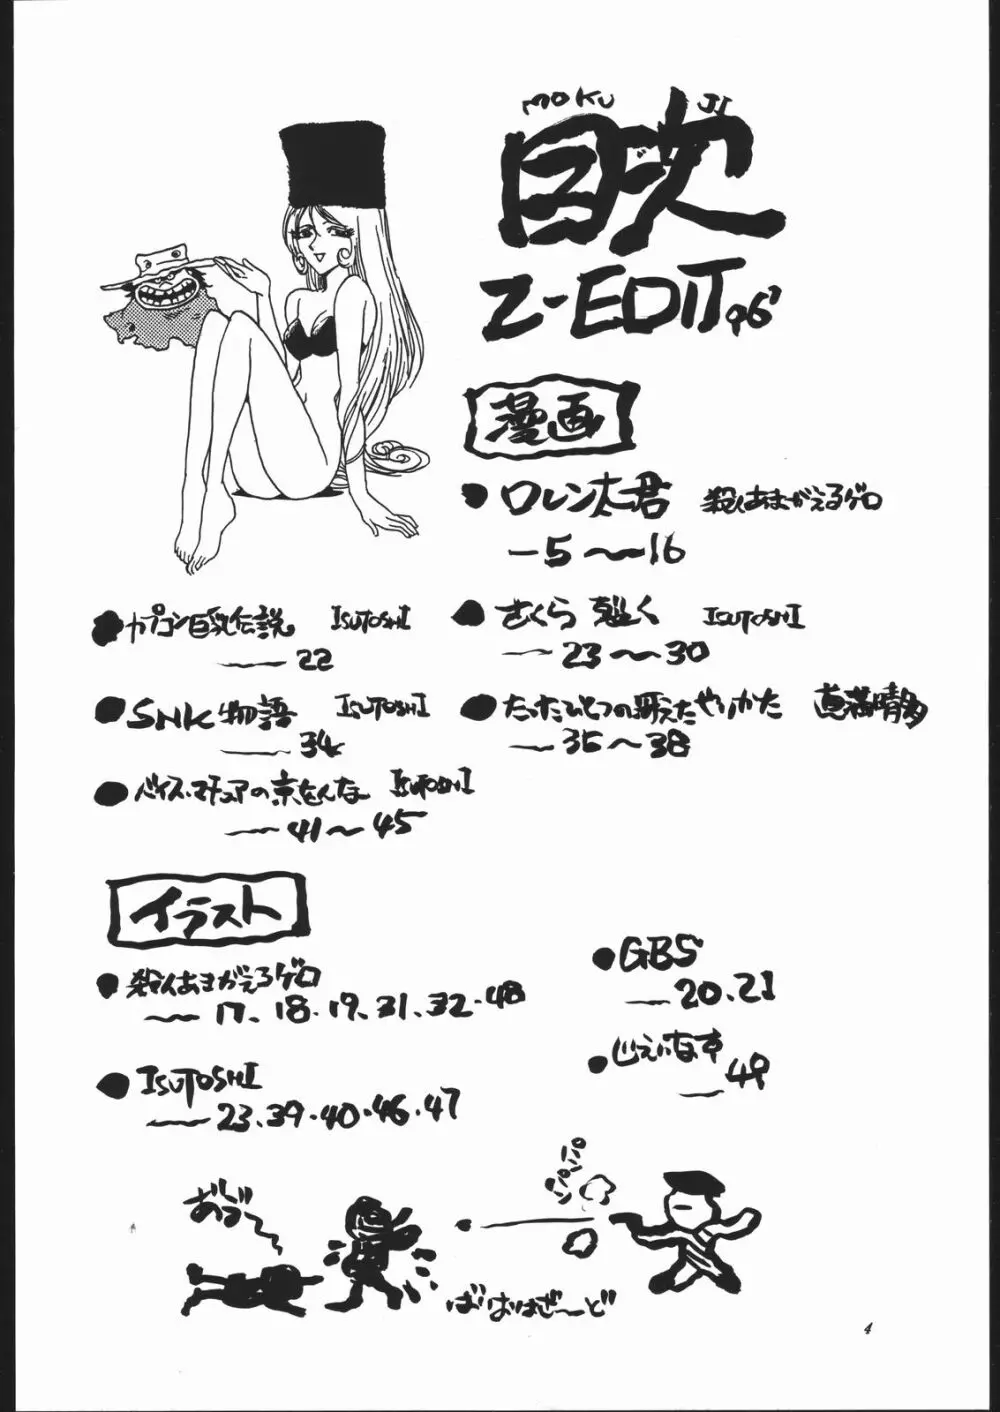 MOKU JI
目次
Z-EDIT 96'
漫画
●ロレン太君 殺人あまがえるゲロ
—5〜—16
●カプコン巨乳伝説 ISUTOSHI
—22
●さくら ISUTOSHI
—23〜30
●SNK物語 ISUTOSHI
—34
●たったひとつの冴えたやりかた 真満晴多
—35〜38
●バイス・マチュアの京をんな ISUTOSHI
—41〜45
イラスト
●殺人あまがえるゲロ
—17、18・19、31、32・48
●GBS
—20、21
●ISUTOSHI
—23、39・40・46、47
●じえいなす
—49
パンパン
あづ〜
ばいおはざーど
4